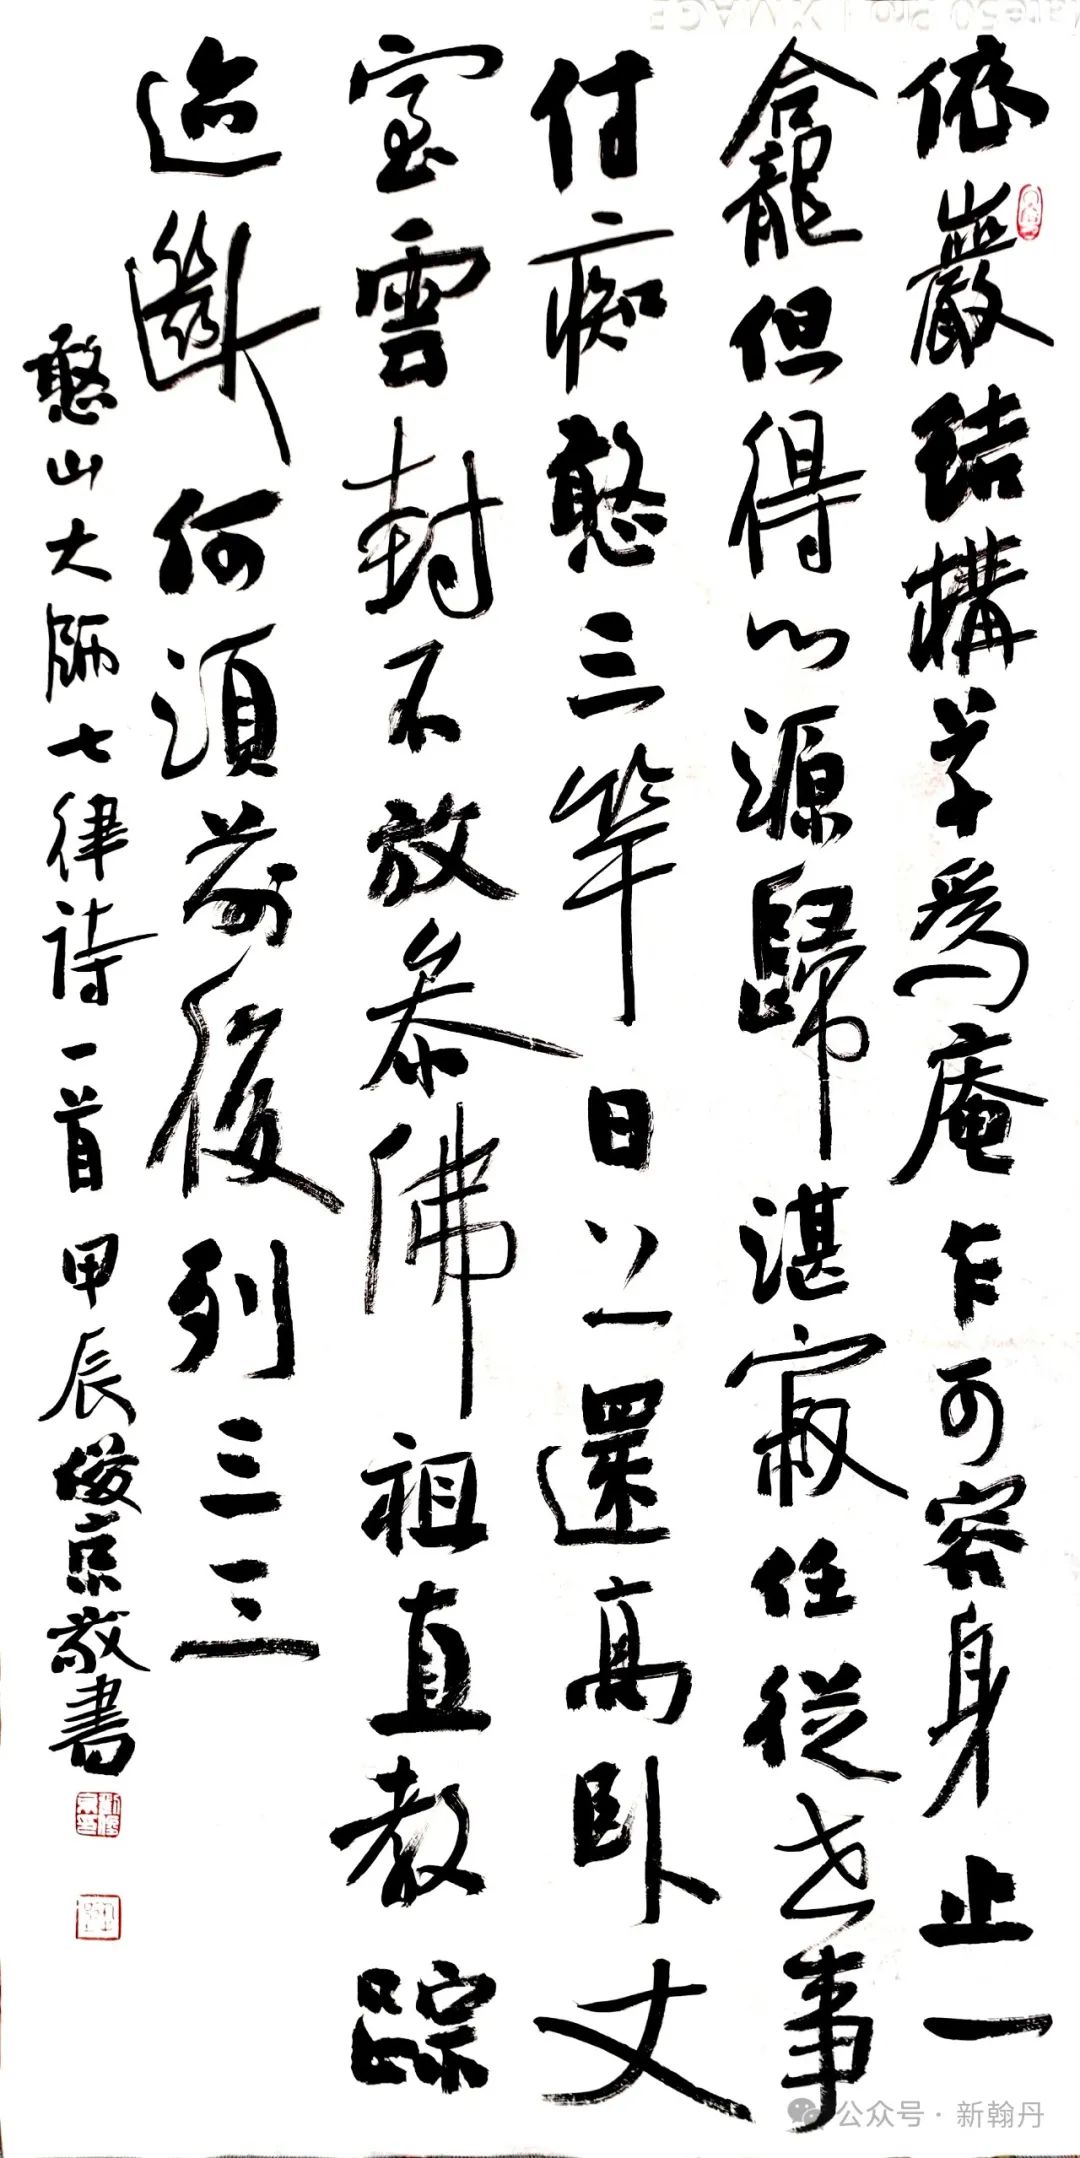 依巖結構草爲庵乍可容身止一
龕但得心源歸湛寂任從世事
付痴憨三竿日上還高卧丈
室雲封不放參佛祖直教踪
迹斷何須前後列三三
憨山大師七律詩一首甲辰俊京敬書
公众号·新翰丹